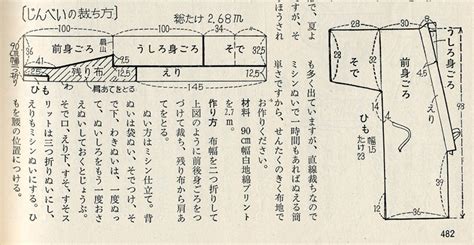 〔じんべいの裁ち方〕
総たけ 2.68m
100
100
36
前身ごろ
肩山
うしろ身ごろ
そで
32.5
90cm幅二つ折り
残り布
14.5
えり
12.5
ひも
肩あてをとる
で、夏よ
ほうされ
も多く出ていますが、直線裁ちなので
ミシンぬいで一時間もあればぬえる簡
単さですから、せんたくのきく布地で
お作りください。
材料 90cm幅白地綿プリント
を2.7m。
作り方 布幅を二つ折りして
上図のように前後身ごろをつ
づけて裁ち、残り布から肩あ
ぬい方はミシン仕立て。背
ぬいは袋ぬい、そでつけ、そ
で下、わきぬいは、一度ぬっ
て、ぬいしろをもう一度おさ
えておくとじょうぶ。
そで口、えり下、すそ、すそス
リットは三つ折りぬいにし、
えりもミシンぬいにする。ひ
もを腰の位置につける。
うしろ身ごろ
前身ごろ
そで
えり
ひも
幅1.5
たけ23
12
36
14
482